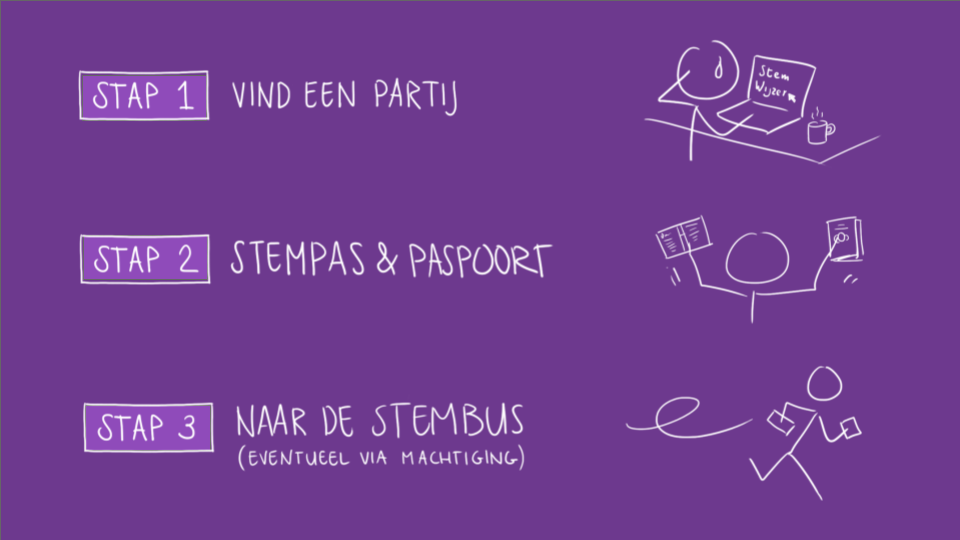 STAP 1
VIND EEN PARTIJ
Stem
Wijzer
STAP 2
STEMPAS & PASPOORT
STAP 3
NAAR DE STEMBUS
(EVENTUEEL VIA MACHTIGING)